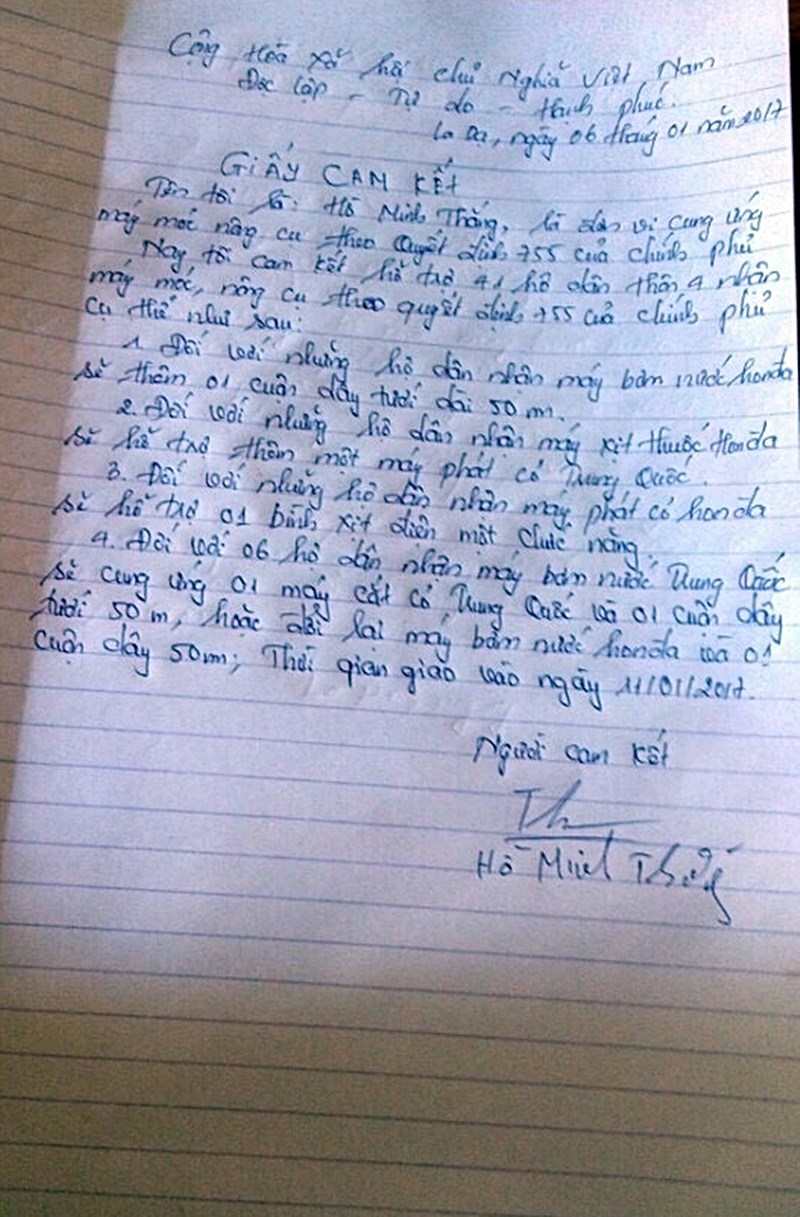 Cộng Hòa Xã hội chủ Nghĩa Việt Nam
Độc lập - Tự do - Hạnh phúc.
La Dạ, ngày 06 tháng 01 năm 2017
GIẤY CAM KẾT
Tên tôi là: Hồ Minh Thắng, là đơn vị cung ứng
máy móc nông cụ theo Quyết định 755 của chính phủ
Nay tôi cam kết hỗ trợ 41 hộ dân thôn 4 nhận
máy móc, nông cụ theo quyết định 755 của chính phủ
cụ thể như sau:
1. Đối với những hộ dân nhận máy bơm nước honda
sẽ thêm 01 cuộn dây tưới dài 50m.
2. Đối với những hộ dân nhận máy xịt thuốc Honda
sẽ hỗ trợ thêm một máy phát cỏ Trung Quốc.
3. Đối với những hộ dân nhận máy phát cỏ honda
sẽ hỗ trợ 01 bình xịt điện một chức năng.
4. Đối với 06 hộ dân nhận máy bơm nước Trung Quốc
sẽ cung ứng 01 máy cắt cỏ Trung Quốc và 01 cuộn dây
tưới 50m, hoặc đổi lại máy bơm nước honda và 01
cuộn dây 50m; Thời gian giao vào ngày 11/01/2017.
Người cam kết
Th
Hồ Minh Thắng